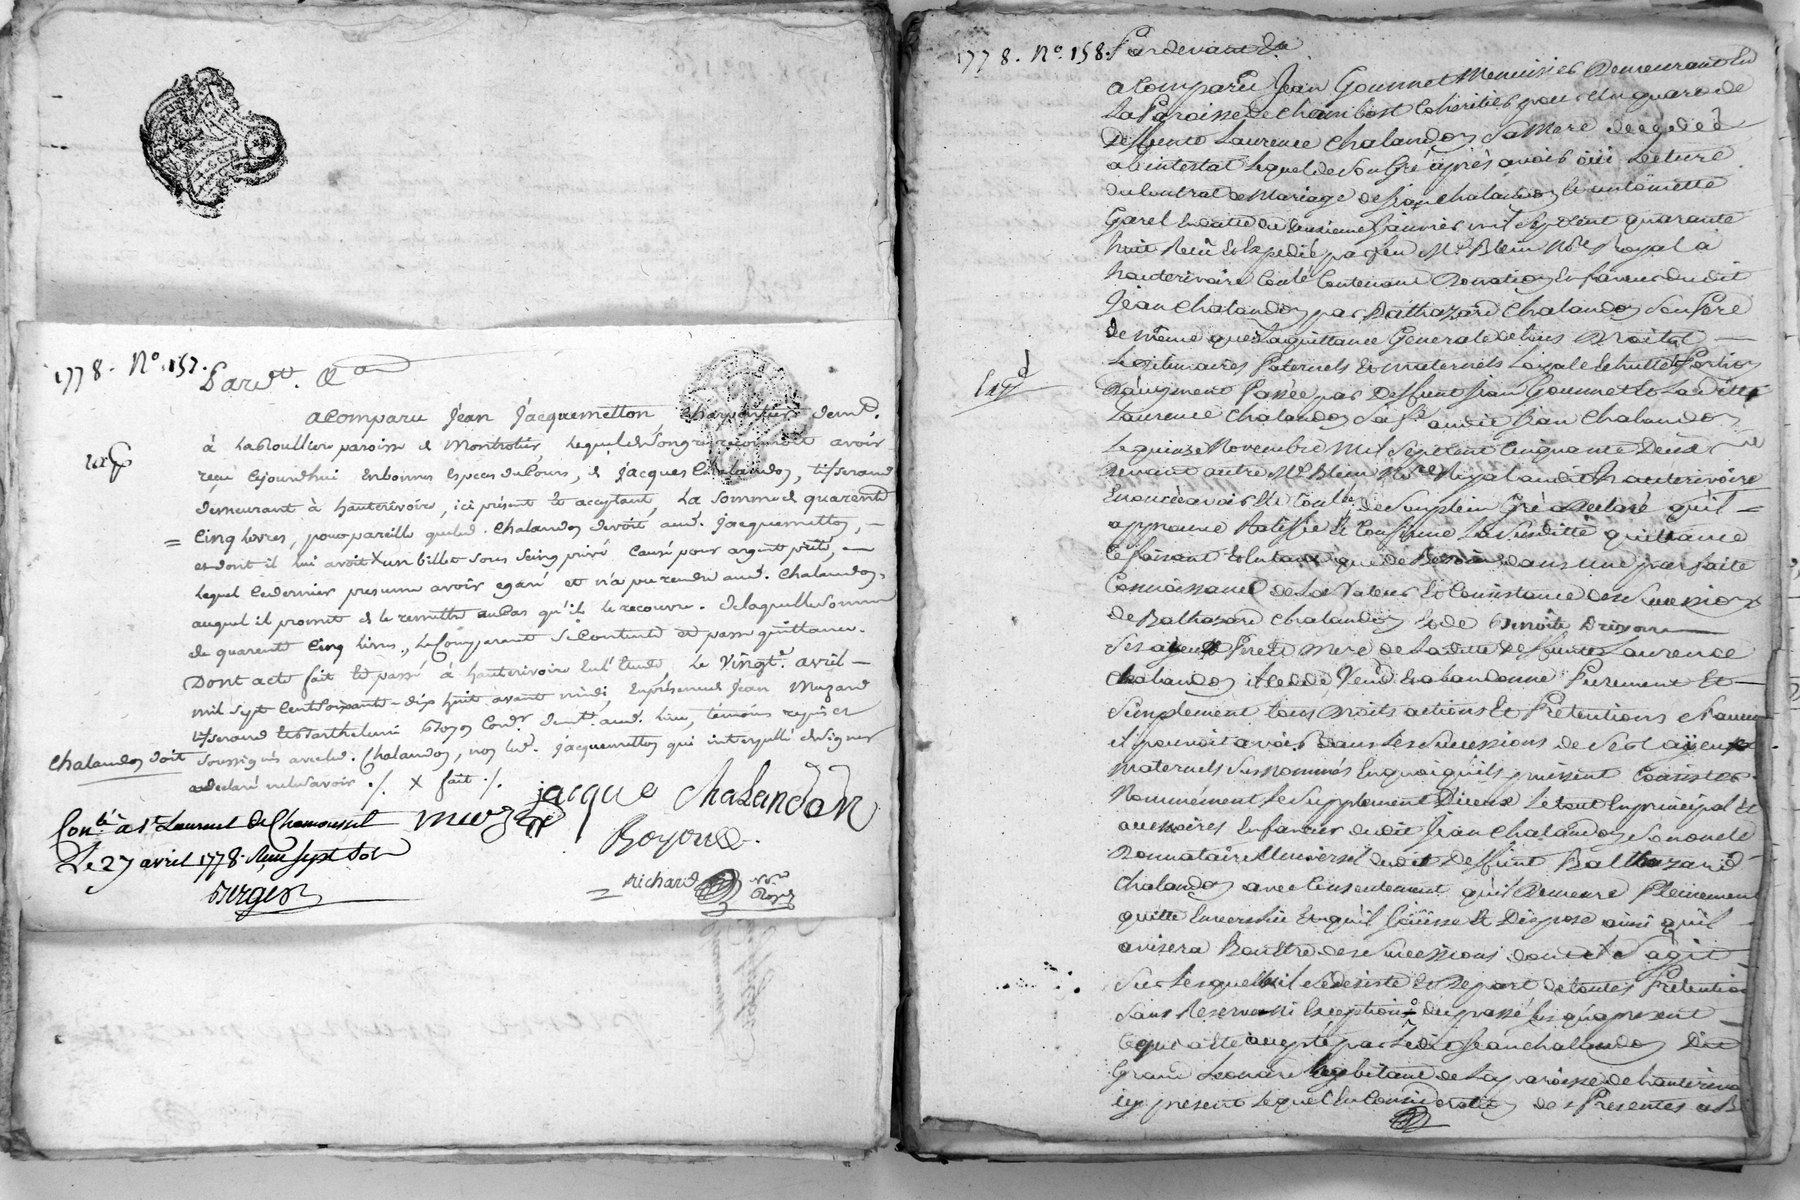 1778. N.o 157.
Pard.tt &a
a Comparu Jean Jacquemetton charpentier dem.t
à La Roulliere paroisse de Montrotier, Lequel de son gré reconnoit avoir
reçu Cejourdhui en bonnes espèces du Cours, de Jacques Chalandon, tisserand
demeurant à hauterivoire, ici présent et acceptant, La somme de quarente
= Cinq livres, pour pareille que led. Chalandon devoit aud. Jacquemetton, —
et dont il lui avoit X un billet sous seing privé Causé pour argent preté,
lequel Ce dernier presume avoir egaré et n'a pu rendre aud. Chalandon,
auquel il promet de le remettre au Cas qu'il le recouvre. de laquelle somme
de quarente Cinq livres, le Comparant se Contente et passe quittance.
Dont acte fait et passé à hauterivoire en l'Etude, Le Vingt.e avril —
mil sept Cent soixante - dix huit avant midi, En présence de Jean Muzard
tisserand et Barthelemi Boyon Cord.r dem.t aud. lieu, témoins requis et
Chalandon doit
soussignés avec led. Chalandon, non led. Jacquemetton qui interpellé de signer
a déclaré ne le savoir ./. X fait ./.
jacque ChaLandon
Con.lé à S.t Laurent de Chamousset
Le 27 avril 1778. Reçu sept sols
Boyon
richard
1778. N.o 158.
Pardevant &a
a Comparu Jean Gounnot Menuisier Demeurant En
La Paroisse de Chambost Coheritier pour Un quart de
Deffunte Laurence Chalandon Sa Mere decedée
abintestat Lequel de son Gré après avoir oüi Lecture
du Contrat de Mariage de Jean Chalandon Et antoinette
Garel En datte du deuxieme Janvier mil sept Cent quarante
huit Reçu Et Expedié par feu M.e Blein N.re Royal à
hauterivoire Contenant Donation En faveur dudit
Jean Chalandon par Balthazard Chalandon son Pere
de même que La quittance Generale de tous Droits —
Legitimaires Paternels Et maternels
D'augment Passée par Deffunt Jean Gounnot Et La ditte
Laurence Chalandon Sa f.e audit Jean Chalandon
Le quinze Novembre Mil Sept Cent Cinquante Deux
devant autre M.e Blein N.re Royal audit hauterivoire
de Son plein Gré a Declaré qu'il =
approuve Ratiffie Et Confirme La Susditte quittance
Ce faisant dans Une parfaite
Connoissance de La Valeur Et Consistance des Successions
de Balthazard Chalandon Et de Benoite
Ses ayeuls Pere Et Mere de Laditte Deffunte Laurence
Chalandon il Cede Vend Et abandonne Purement Et —
Simplement tous Droits actions Et Pretentions
il pouvoit avoir Dans Les Successions de Ses ayeux
maternels Susnommés En quoi qu'ils puissent Consister
Nommément Le Supplement D'iceux Le tout En principal Et
accessoires En faveur dudit Jean Chalandon Son oncle
Donnataire Universel dudit Deffunt Balthazard
Chalandon avec Consentement qu'il Demeure Pleinement
quitte Envers lui Et qu'il Joüisse Et Dispose ainsi qu'il
avisera Bon Etre des Successions dont il S'agit
Sur Lesquelles il Se desiste Et Depart de toutes Pretentions
Sans Reserve ni Exception du passé Jusqu'à present
Ce qui a Eté accepté par Ledit Jean Chalandon Dit
Grand Leonard habitant de La paroisse de hauterivoire
icy present Lequel En Consideration des Presentes a